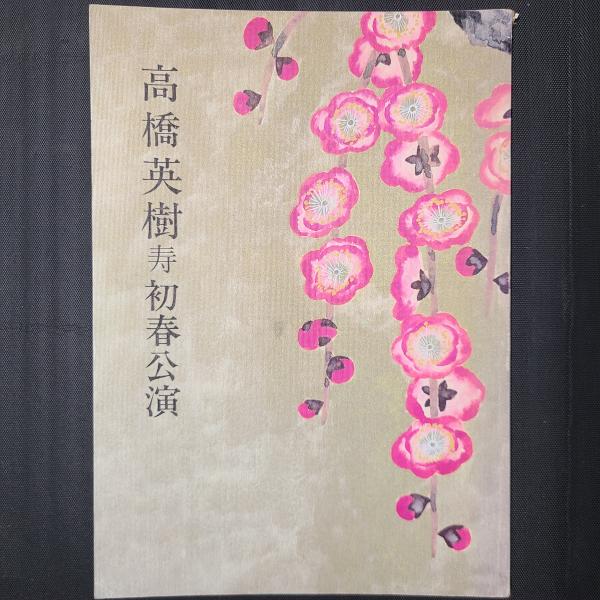 高橋英樹寿初春公演